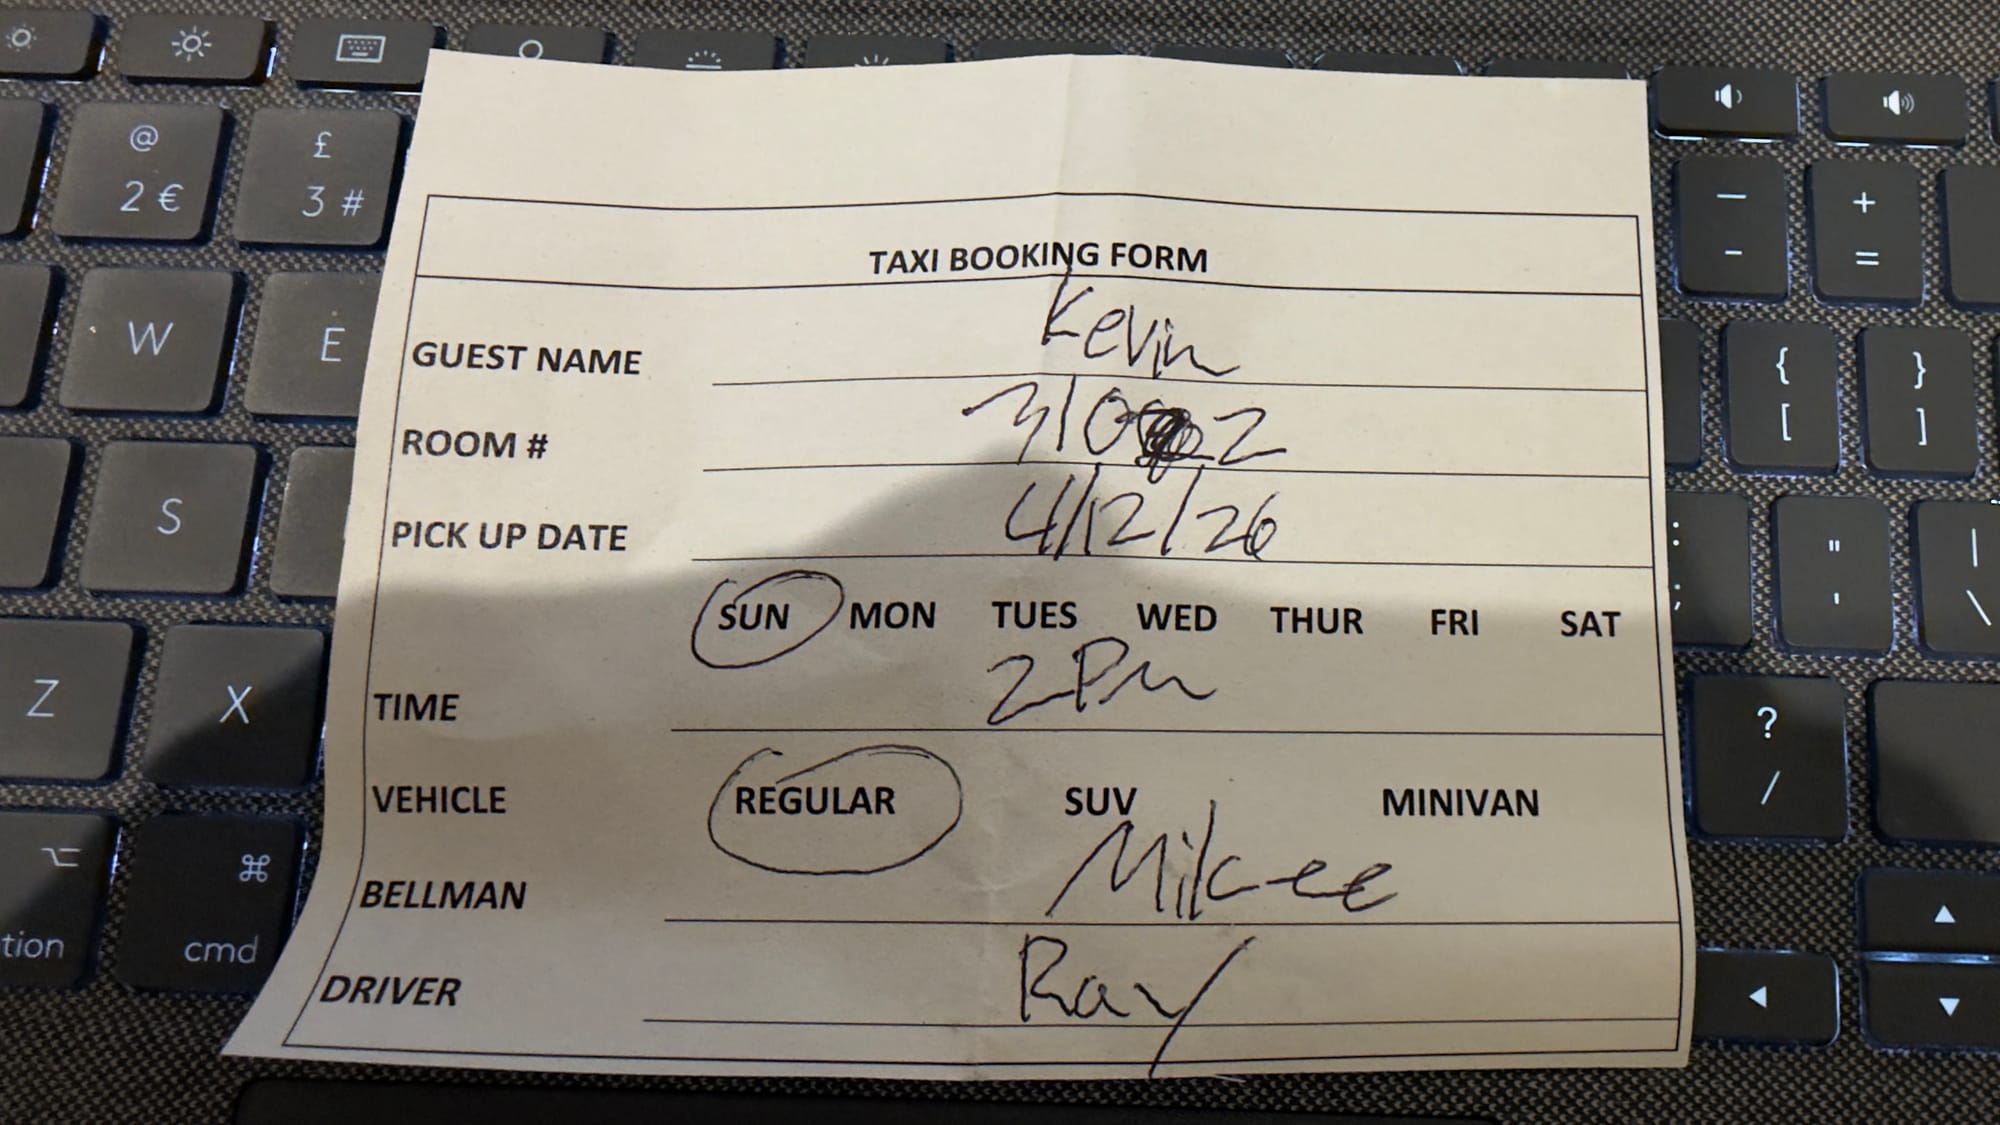 @
2 €
£
3 #
— +
- =
TAXI BOOKING FORM
GUEST NAME Kevin
ROOM # 3102
PICK UP DATE 4/12/26
SUN MON TUES WED THUR FRI SAT
TIME 2PM
VEHICLE REGULAR SUV MINIVAN
BELLMAN Mikee
DRIVER Ray
W E
{ }
[ ]
S
: " |
; ' \
Z X
?
/
tion cmd